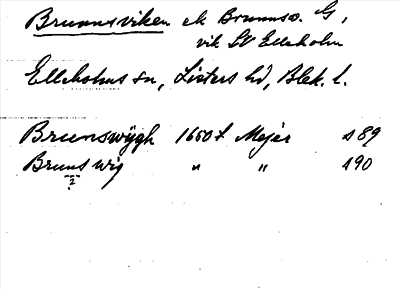 Brunnsviken ek Brunnsv. G,
vik SV Elleholm
Ellehohns sn, Listers hd, Blek. l.
Brunswijgh 1650 t. Mejer s 89
Bruns wig " " s 90
2